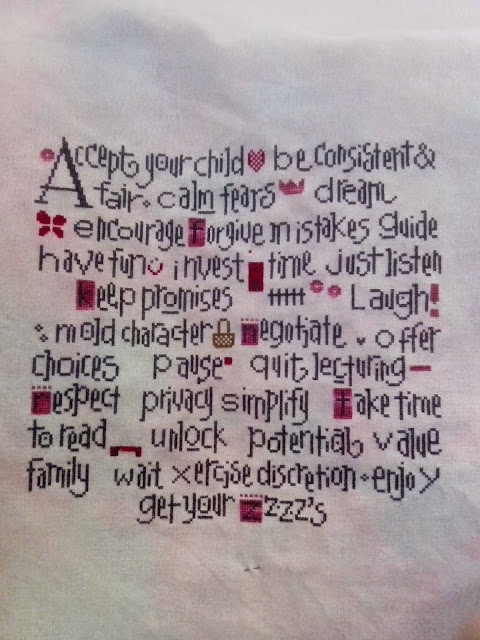 Accept your child be consistent &
fair calm fears dream
encourage forgive mistakes guide
have fun invest time Just listen
keep promises Laugh!
mold character negotiate offer
choices pause quit lecturing
respect privacy simplify take time
to read unlock potential value
family wait xercise discretion enjoy
get your zzzz's